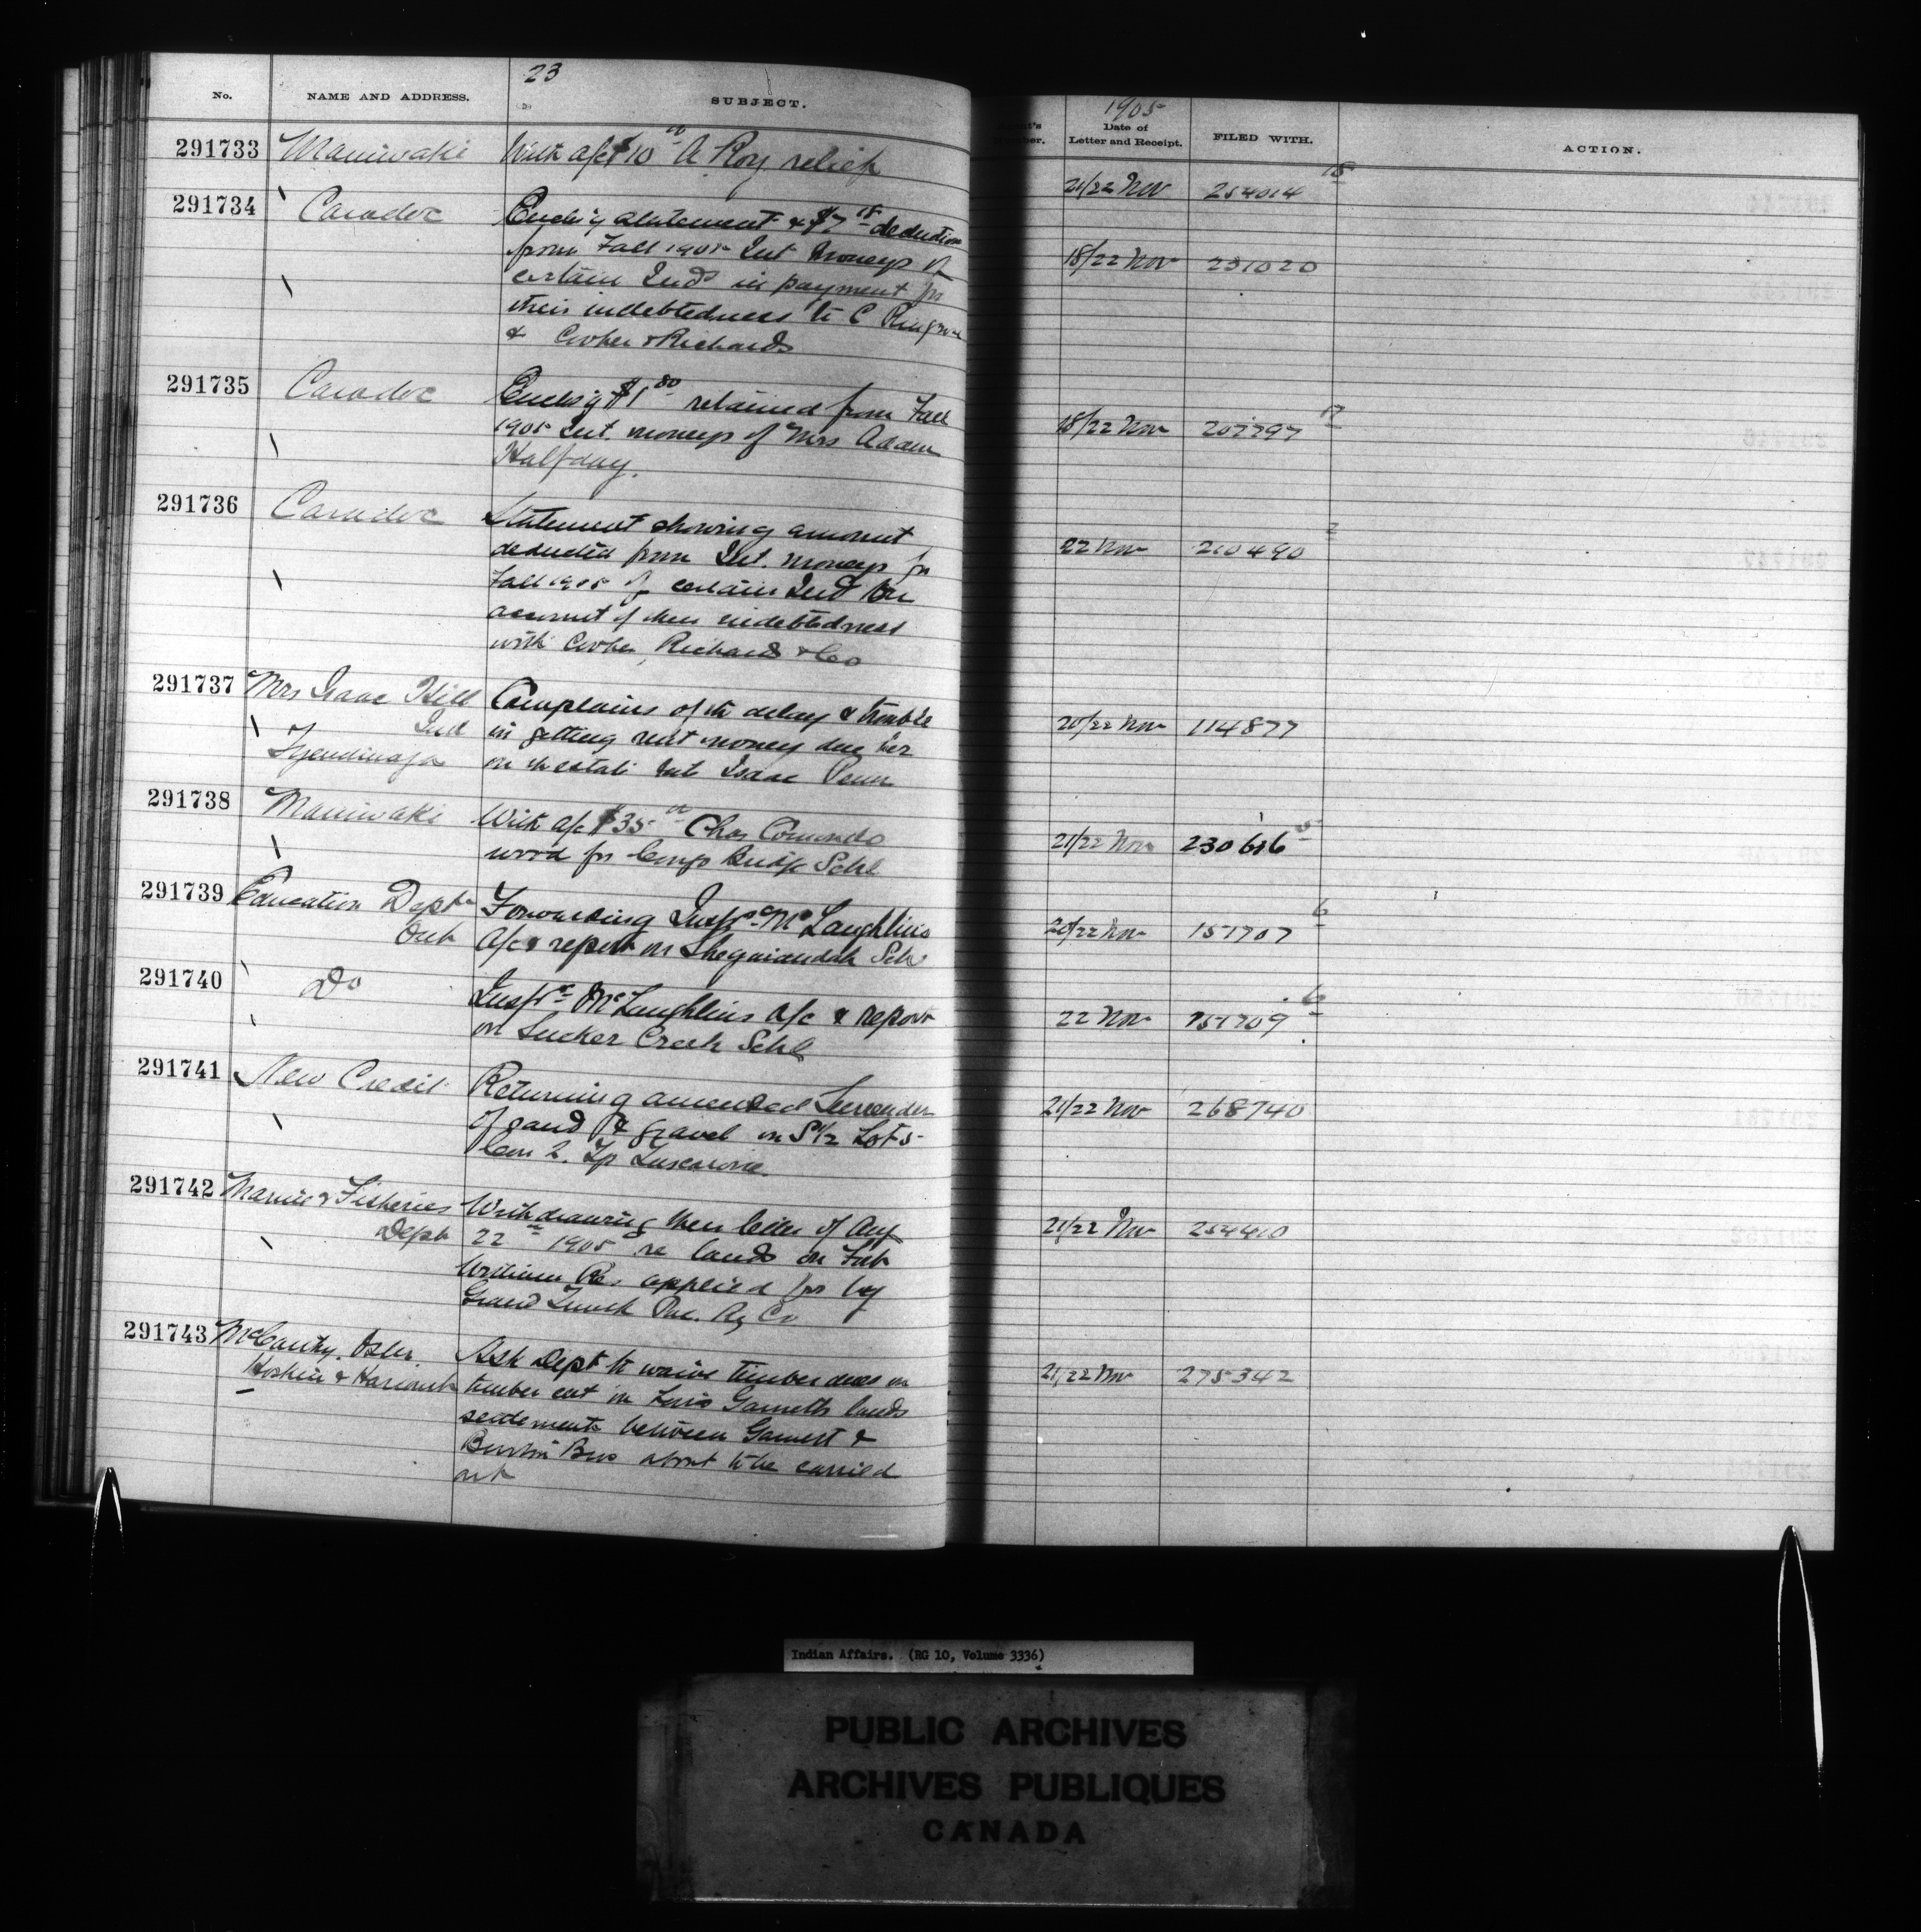 23
No. NAME AND ADDRESS. SUBJECT.
1905
Number. Date of Letter and Receipt. FILED WITH. ACTION.
291733 Maniwaki With a/c $10 00 A Roy relief 21/22 Nov 254014 18
291734 Caradoc Enclsig statement & $7 18 deduction 18/22 Nov 231020
from Fall 1905 Int moneys of
certain Inds in payment for
their indebtedness to C
& Cooher & Richards
291735 Caradoc Enclsig $1 80 retained from Fall 18/22 Nov 207797 17
1905 Int. moneys of Mrs Adam
Halfday.
291736 Caradoc Statement showing amount 22 Nov 210490 2
deducted from Int. moneys for
Fall 1905 of certain Ind on
account of their indebtedness
with Cooher, Richards & Co
291737 Mrs Isaac Hill Complains of the delay & trouble 20/22 Nov 114877
Ind in getting rent money due her
Tyendinaga on the estate late Isaac Penn
291738 Maniwaki With a/c $35 00 Chas Commodo 21/22 Nov 230616 5
wood for Congo Bridge Schl
291739 Education Dept Forwarding Inspr McLaughlins 20/22 Nov 151707 6
Ont a/c & report on Sheguiandah Sch
291740 Do Inspr McLaughlins a/c & report 22 Nov 151709 6
on Sucker Creek Schl
291741 New Credit Returning amended Surrender 21/22 Nov 268740
of sand & gravel on S1/2 Lot 5
Con 2. Tp Tuscarora
291742 Marine & Fisheries Withdrawing their letter of Aug 21/22 Nov 254410
Dept 22nd 1905 re lands on Fort
William Res applied for by
Grand Trunk Pac. Ry Co
291743 McCarthy. Osler. Ask Dept to waive timber dues on 21/22 Nov 275342
Hoskin & Harcourt timber cut on Garnetts lands
settlement between Garnett &
Bros about to be carried
out
Indian Affairs. (RG 10, Volume 3336)
PUBLIC ARCHIVES
ARCHIVES PUBLIQUES
CANADA